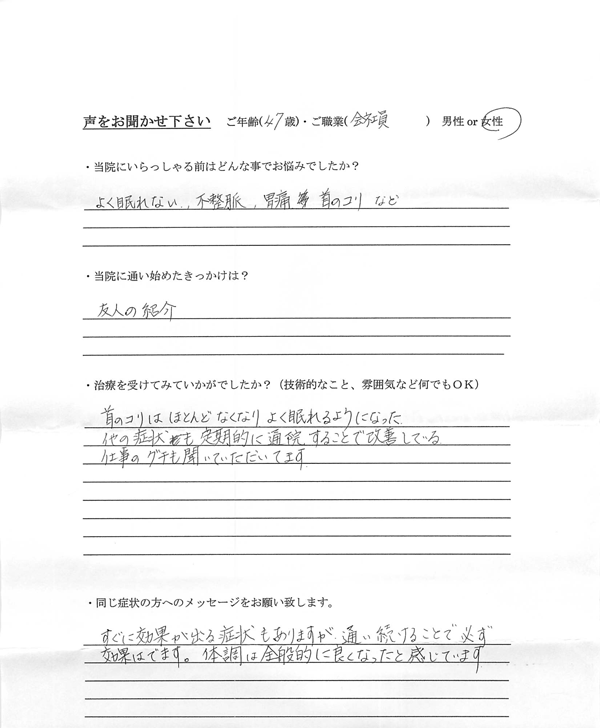 声をお聞かせ下さい ご年齢(47歳)・ご職業(会社員) 男性 or 女性
・当院にいらっしゃる前はどんな事でお悩みでしたか？
よく眠れない、不整脈、胃痛 首のコリ など
・当院に通い始めたきっかけは？
友人の紹介
・治療を受けてみていかがでしたか？（技術的なこと、雰囲気など何でもＯＫ）
首のコリは ほとんどなくなり よく眠れるようになった
他の症状も 定期的に通院することで改善している
仕事のグチも聞いていただいてます
・同じ症状の方へのメッセージをお願い致します。
すぐに効果が出る症状もありますが、通い続けることで必ず
効果はでます。体調は全般的に良くなったと感じています